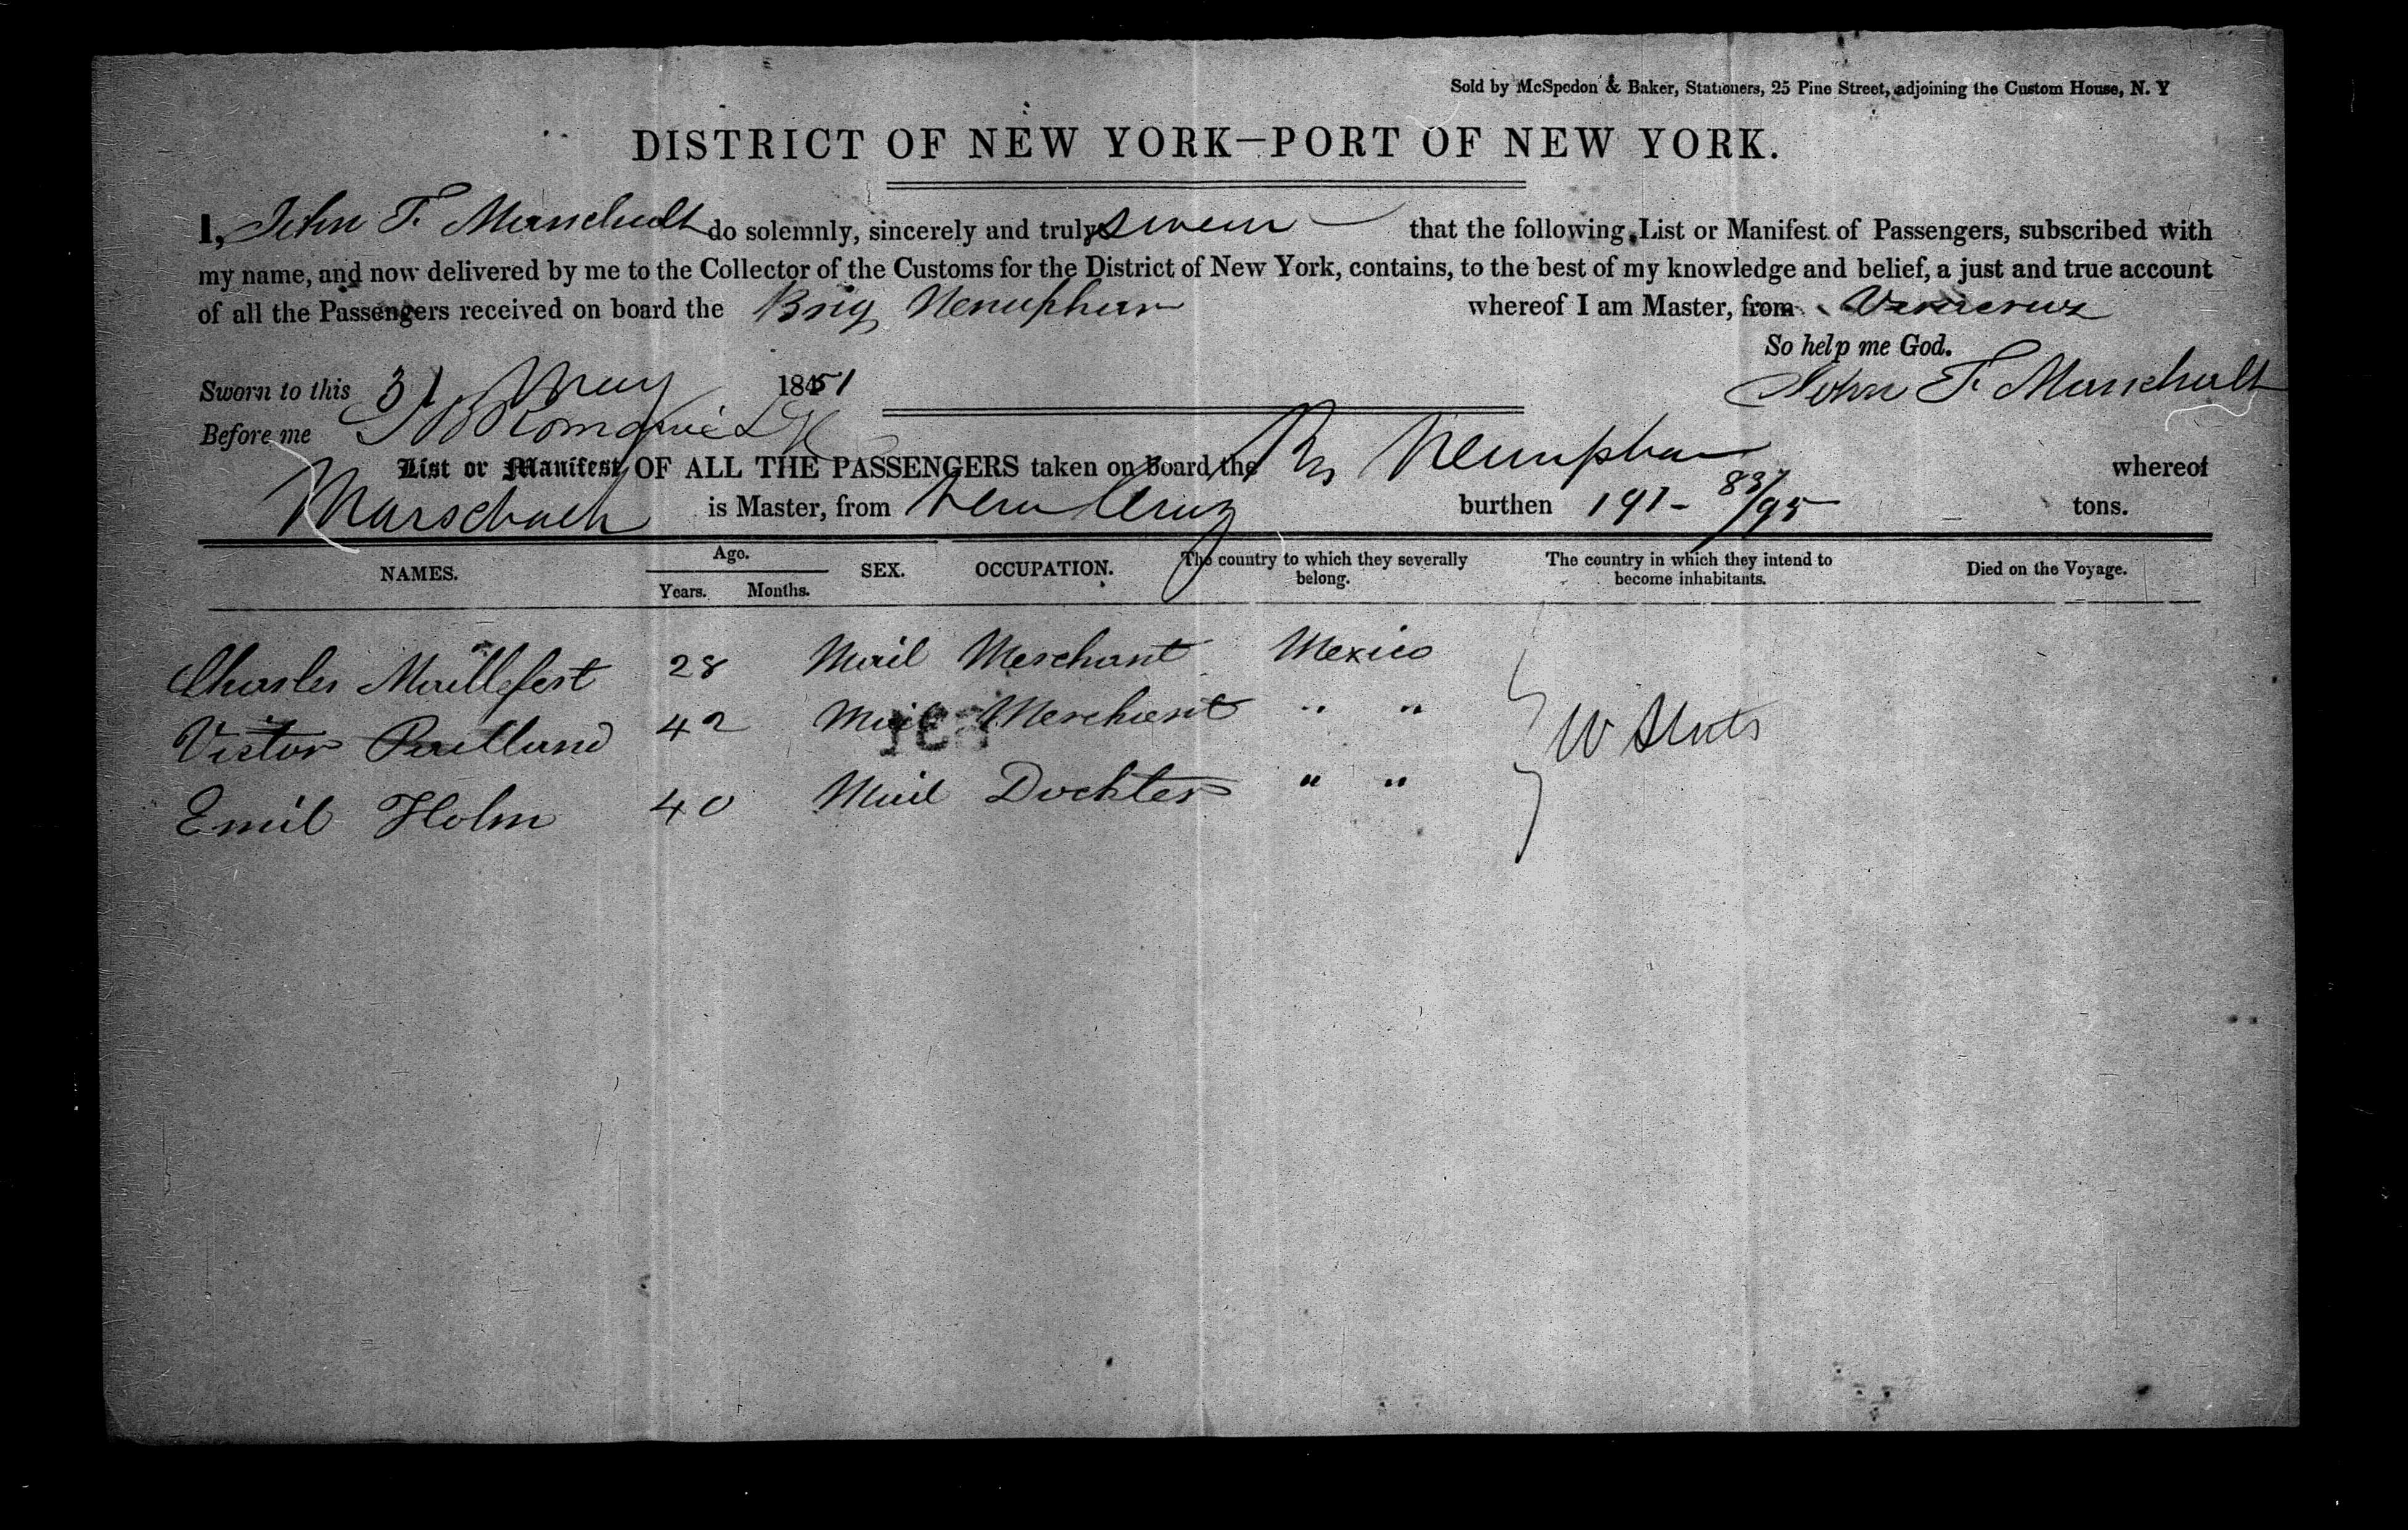 Sold by McSpedon & Baker, Stationers, 25 Pine Street, adjoining the Custom House, N. Y
DISTRICT OF NEW YORK—PORT OF NEW YORK.
I, John F. Marschalk do solemnly, sincerely and truly swear that the following List or Manifest of Passengers, subscribed with
my name, and now delivered by me to the Collector of the Customs for the District of New York, contains, to the best of my knowledge and belief, a just and true account
of all the Passengers received on board the Brig Nenuphar whereof I am Master, from Veracruz
So help me God.
Sworn to this 31 May 1851 John F. Marschalk
Before me
List or Manifest, OF ALL THE PASSENGERS taken on board the Brig Nenuphar whereof
is Master, from Vera Cruz burthen 191- 83/95 tons.
NAMES. Age. Years. Months. SEX. OCCUPATION. The country to which they severally belong. The country in which they intend to become inhabitants. Died on the Voyage.
Charles Maillefert 28 Mail Merchant Mexico
Victor 42 Mail Merchant " "
Emil Holm 40 Mail Dockter " "